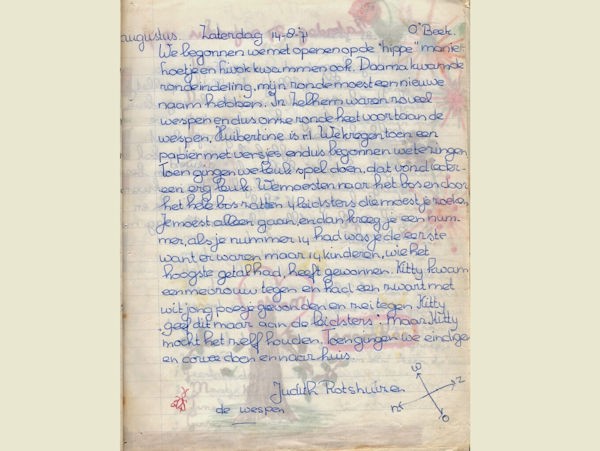 augustus. Zaterdag 14-8-'71 O'Beek.
We begonnen we met openen op de "hippe" manier
hoetje en kwok kwammen ook. Daarna kwam de
ronde indeling, mijn ronde moest een nieuwe
naam hebben. In Zelhem waren zoveel
wespen en dus onze ronde heet voortaan de
wespen, Huibertine is r.l. We kregen toen een
papier met versjes en dus begonnen we te zingen
Toen gingen we leuk spel doen, dat vond ieder-
een erg leuk. We moesten naar het bos en door
het hele bos zatten 4 leidsters die moest je zoeken,
Je moest alleen gaan, en dan kreeg je een num-
mer, als je nummer 14 had was je de eerste
want er waren maar 14 kinderen, wie het
hoogste getal had, heeft gewonnen. Kitty kwam
een mevrouw tegen en had een zwart met
wit jong poesje gevonden en zei tegen Kitty
geef dit maar aan de leidsters; maar Kitty
mocht het zelf houden. Toen gingen we eindigen
en corvee doen en naar huis.
Judith Rotshuizen
de wespen
W
Z
N
O